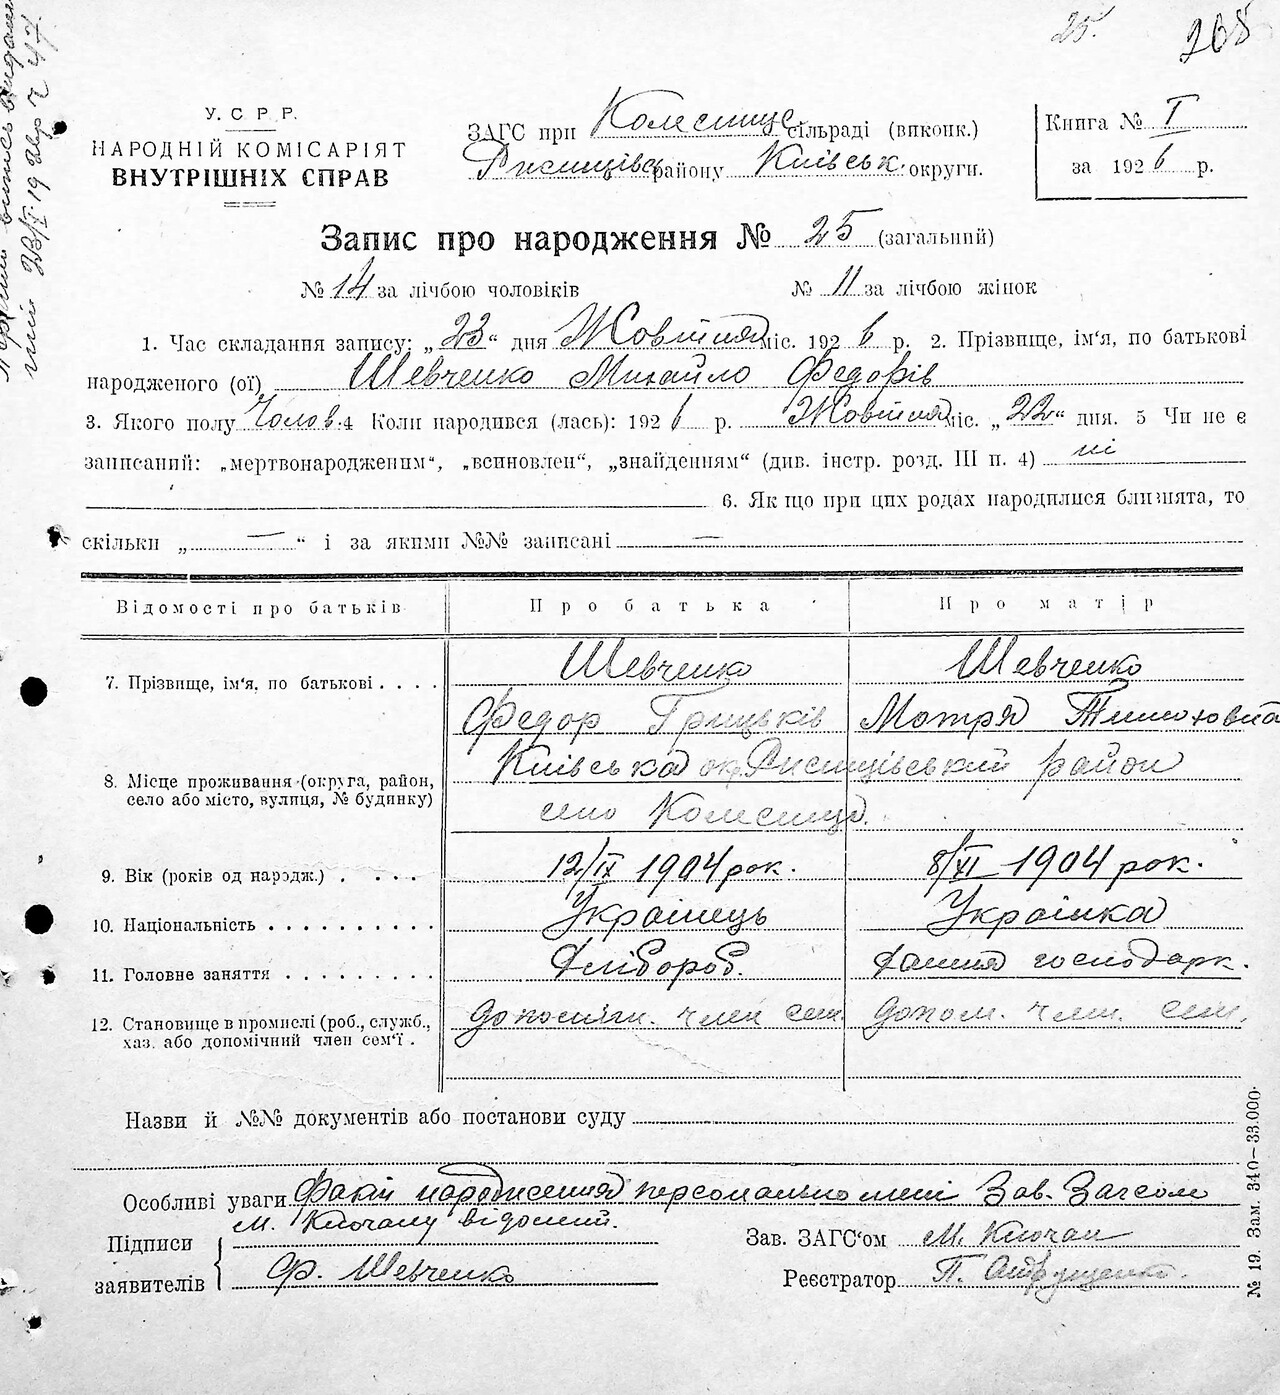 25.
268
У. С. Р. Р.
НАРОДНІЙ КОМІСАРІЯТ
ВНУТРІШНІХ СПРАВ
ЗАГС при Колесище сільраді (виконк.)
Ржищівськ району Київськ. округи.
Книга № I
за 1926 р.
Запис про народження № 25 (загальний)
№ 14 за лічбою чоловіків № 11 за лічбою жінок
1. Час складання запису: „23“ дня Жовтня міс. 1926 р. 2. Прізвище, ім‘я, по батькові
народженого (ої) Шевченко Михайло Федорів
3. Якого полу Чолов. 4 Коли народився (лась): 1926 р. Жовтня міс. „22“ дня. 5 Чи не є
записаний: „мертвонародженим“, „всиновлен“, „знайденням“ (див. інстр. розд. III п. 4) ні
6. Якщо при цих родах народилися близнята, то
скільки „ — “ і за якими №№ записані —
Відомості про батьків Про батька Про матір
7. Прізвище, ім‘я, по батькові . . . . Шевченко Шевченко
Федор Грицьків Мотря Тимохівна
8. Місце проживання (округа, район, Київська окр. Ржищівський район
село або місто, вулиця, № будинку) село Колесище.
9. Вік (років од народж.) . . . . 12/IX 1904 рок. 8/XI 1904 рок.
10. Національність . . . . . . . . . . Українець Українка
11. Головне заняття . . . . . . . . . Хлібороб. домашня господарк.
12. Становище в промислі (роб., служб., допоміжн. член сем. допом. член. сем.
хаз. або допомічний член сем‘ї .
Назви й №№ документів або постанови суду
Особливі уваги Факт народження персонально мені Зав. Загсом
М. Ключану відомий.
Підписи
заявителів
Ф. Шевченко
Зав. ЗАГС‘ом М. Ключан
Реєстратор П.
№ 19. Зам. 340—33.000.